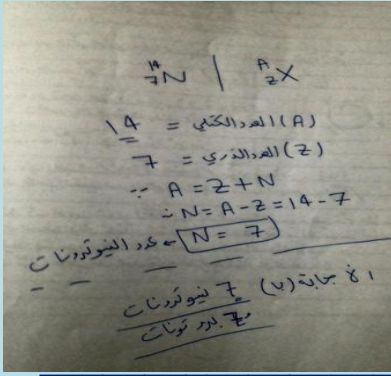 ¹⁴₇N | ᴬ_ZX
(A) العدد الكتلي = 14
(Z) العدد الذري = 7
∵ A = Z + N
∴ N = A - Z = 14 - 7
N = 7 ← عدد النيوترونات
الاجابة (ب) 7 نيوترونات
7 بروتونات